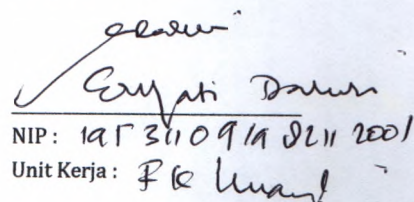 Eryati Darwin
NIP : 19531109 198211 2001
Unit Kerja : FK Unand